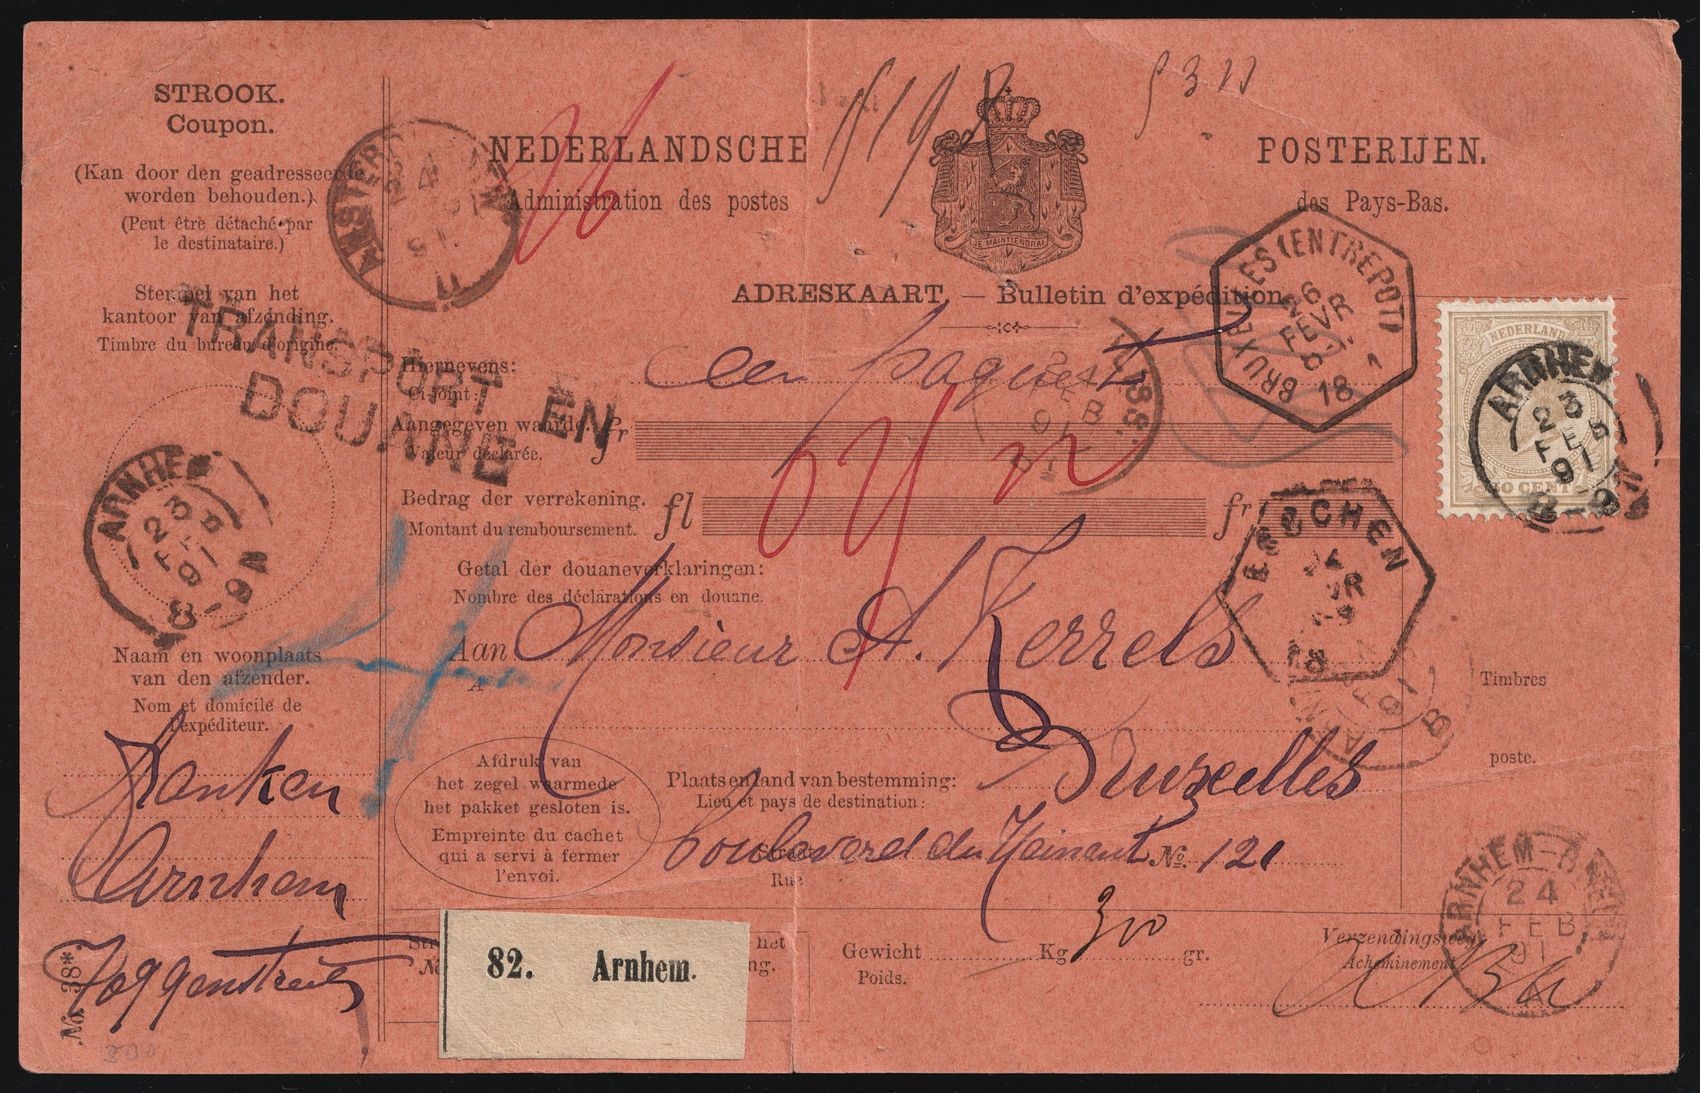 STROOK.
Coupon.
(Kan door den geadresseerde
worden behouden.)
(Peut être détaché par
le destinataire.)
Stempel van het
kantoor van afzending.
Timbre du bureau d'origine.
ARNHEM
23
FEB
91
8-9N
Naam en woonplaats
van den afzender.
Nom et domicile de
l'expéditeur.
Arnhem
No. 38*.
AMSTERD
24
91
TRANSPORT EN
DOUANE
NEDERLANDSCHE POSTERIJEN.
Administration des postes des Pays-Bas.
JE MAINTIENDRAI
ADRESKAART. — Bulletin d'expédition.
Hiernevens: een paquet
Ci-joint:
Aangegeven waarde. fr
Valeur déclarée.
Bedrag der verrekening. fl fr
Montant du remboursement.
Getal der douaneverklaringen:
Nombre des déclarations en douane.
Aan Monsieur A. Kerrels
A
Plaats en land van bestemming: Bruxelles
Lieu et pays de destination:
boulevard du Hainaut No. 121
Rue
Afdruk van
het zegel waarmede
het pakket gesloten is.
Empreinte du cachet
qui a servi à fermer
l'envoi.
82. Arnhem.
Gewicht Kg. 300 gr.
Poids.
Verzendingsweg
Acheminement
BRUXELLES (ENTREPOT)
26
FEVR
18 1
ESSCHEN
NEDERLAND
ARNHEM
23
FEB
91
8-9N
Timbres
poste.
24
FEB
91